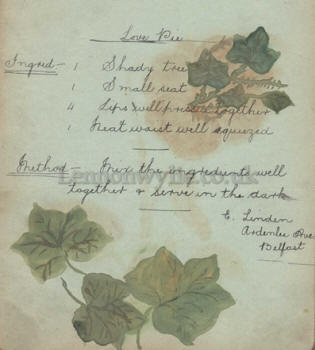 Love Pie
Ingred— 1 Shady tree
1 Small seat
4 Lips well pressed together
1 Neat waist well squeezed
Method— Mix the ingredients well
together & serve in the dark
E. Linden
Ardenlee Ave.
Belfast
Lennonwylie.co.uk